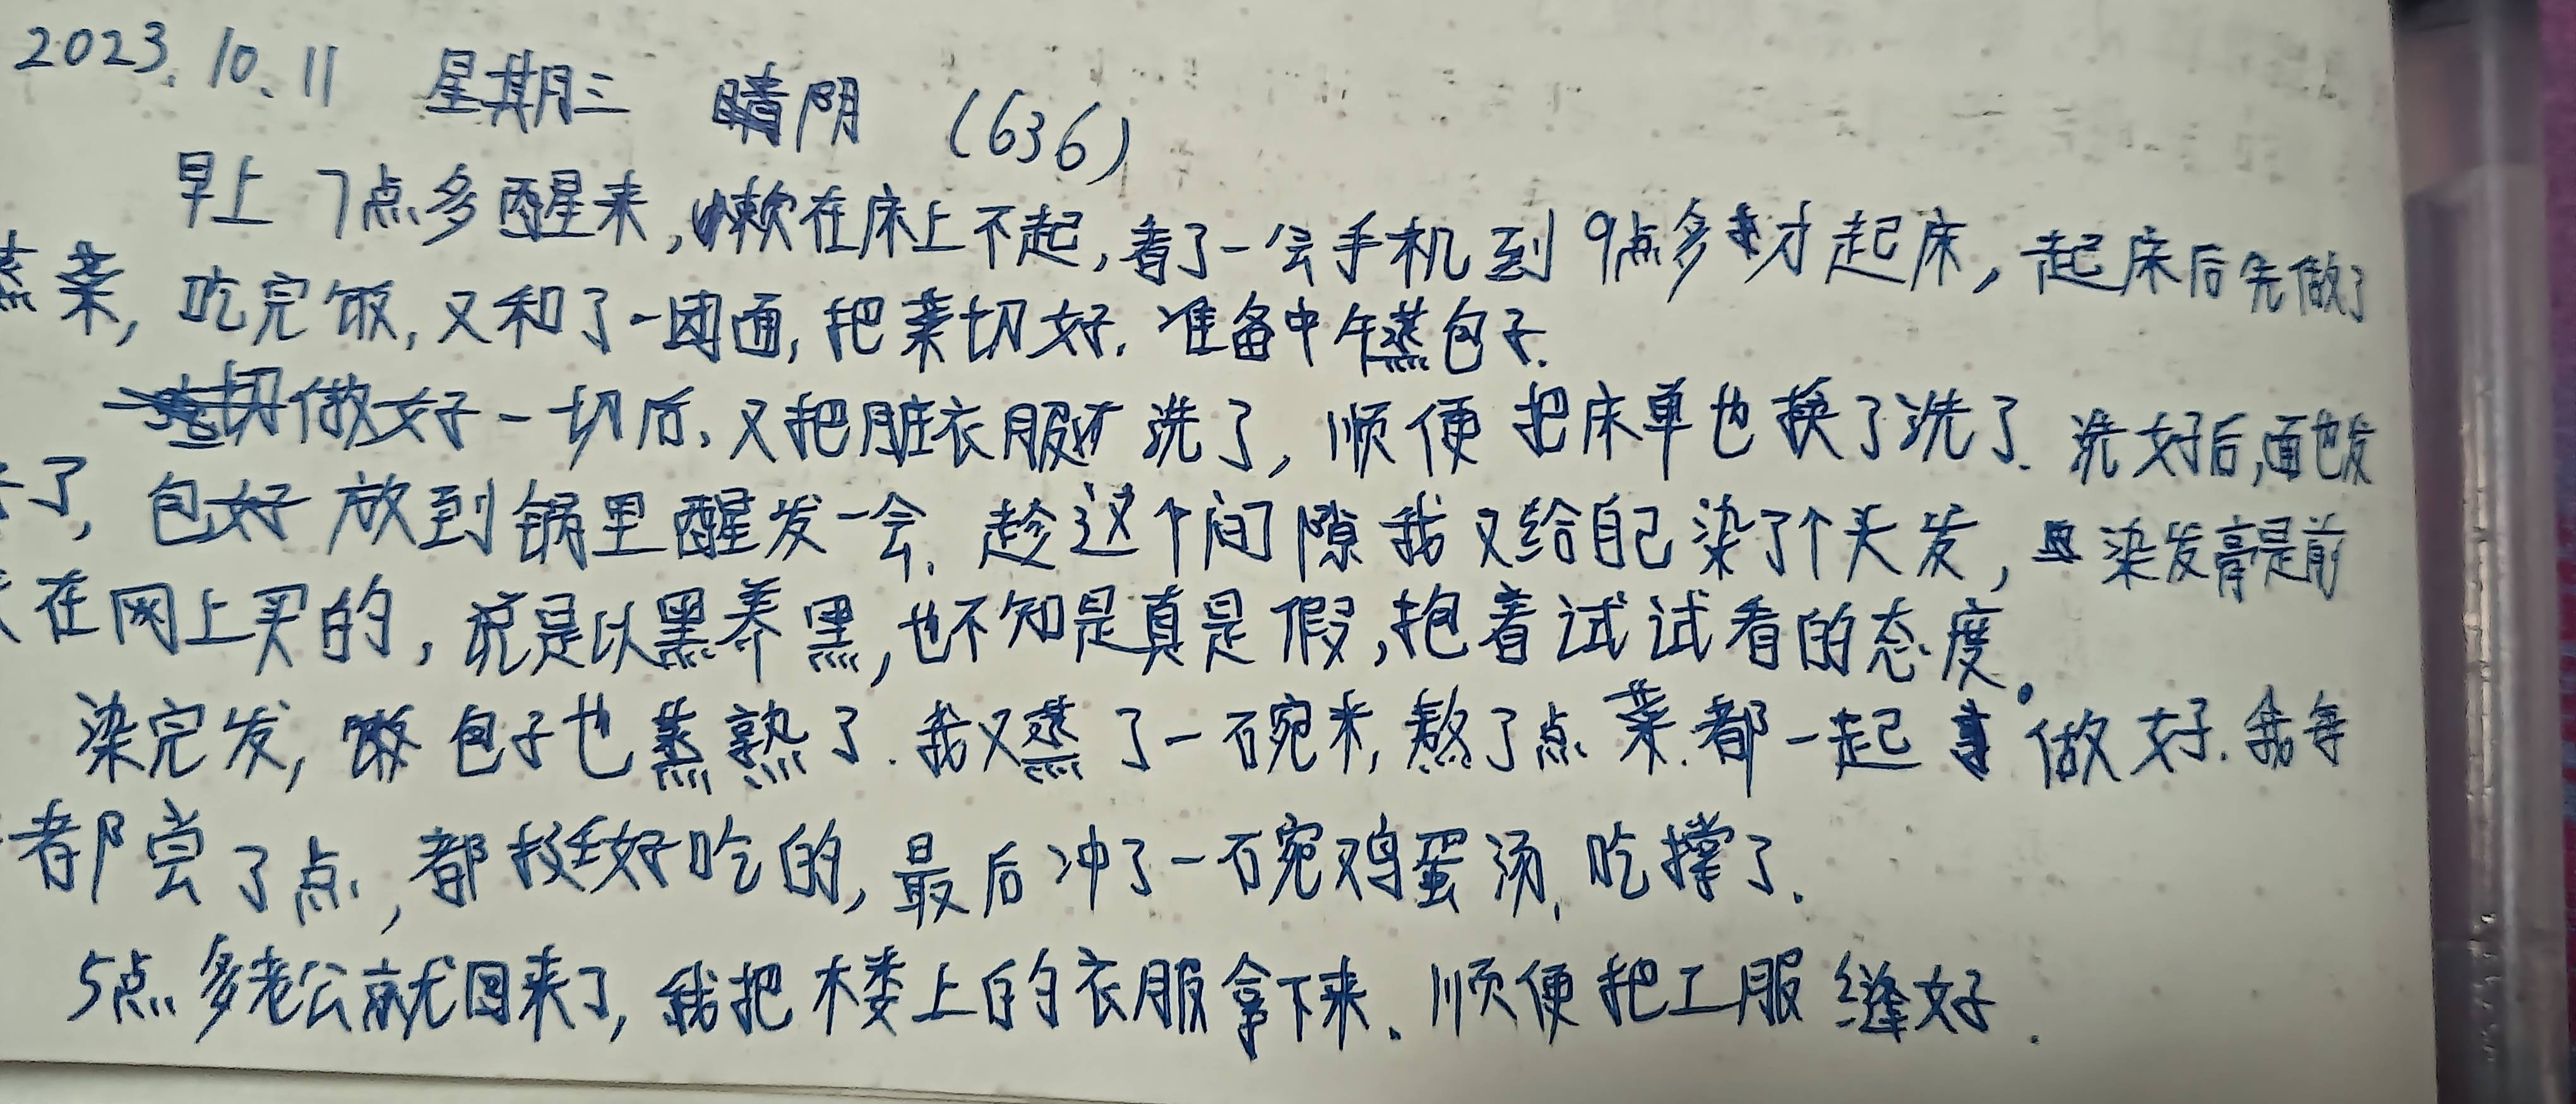 2023.10.11 星期三 晴阴 (636)
早上7点多醒来,懒在床上不起,看了一会手机到9点多才起床,起床后先做了
蒸菜,吃完饭,又和了一团面,把菜切好.准备中午蒸包子.
做好一切后.又把脏衣服洗了,顺便把床单也换了洗了.洗好后,面也发
了,包好放到锅里醒发一会.趁这个间隙我又给自己染了个头发,染发膏是前
在网上买的,说是以黑养黑,也不知是真是假,抱着试试看的态度.
染完发,包子也蒸熟了.我又蒸了一碗米,熬了点菜.都一起做好.我每
都尝了点,都挺好吃的,最后冲了一碗鸡蛋汤,吃撑了.
5点多老公就回来了,我把楼上的衣服拿下来.顺便把工服缝好.